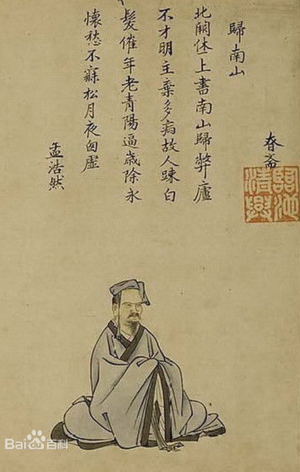 春齋
臨池清興
歸南山
北闕休上書南山歸弊廬
不才明主棄多病故人踈白
髮催年老青陽逼歲除永
懷愁不寐松月夜囱虛
孟浩然
Bai百科